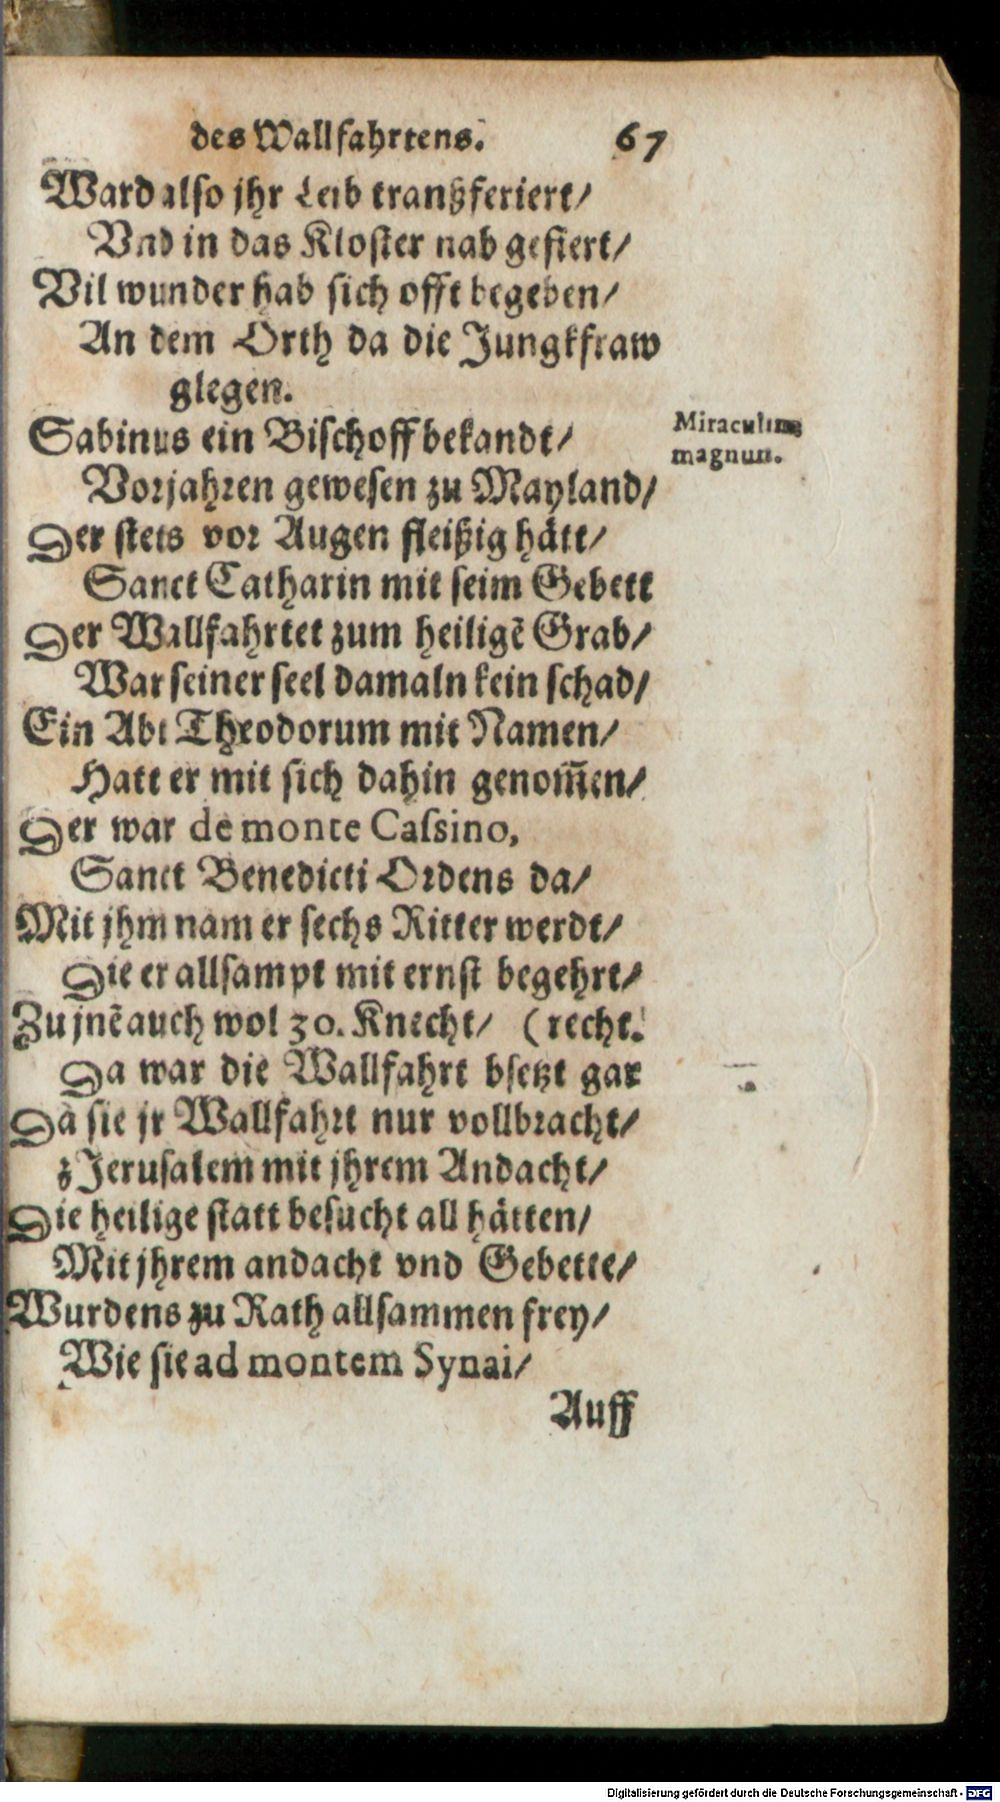 des Wallfahrtens. 67
Ward also jhr Leib tranßferiert/
Vnd in das Kloster nab gefiert/
Vil wunder hab sich offt begeben/
An dem Orth da die Jungkfraw
glegen.
Sabinus ein Bischoff bekandt/
Miraculum
magnum.
Vorjahren gewesen zu Mayland/
Der stets vor Augen fleißig hätt/
Sanct Catharin mit seim Gebett
Der Wallfahrtet zum heiligẽ Grab/
War seiner seel damaln kein schad/
Ein Abt Theodorum mit Namen/
Hatt er mit sich dahin genom̃en/
Der war de monte Cassino,
Sanct Benedicti Ordens da/
Mit jhm nam er sechs Ritter werdt/
Die er allsampt mit ernst begehrt/
Zu jnẽ auch wol 30. Knecht/ (recht.
Da war die Wallfahrt bsetzt gar
Dã sie jr Wallfahrt nur vollbracht/
z Jerusalem mit jhrem Andacht/
Die heilige statt besucht all hätten/
Mit jhrem andacht vnd Gebette/
Wurdens zu Rath allsammen frey/
Wie sie ad montem Synai/
Auff
Digitalisierung gefördert durch die Deutsche Forschungsgemeinschaft - DFG